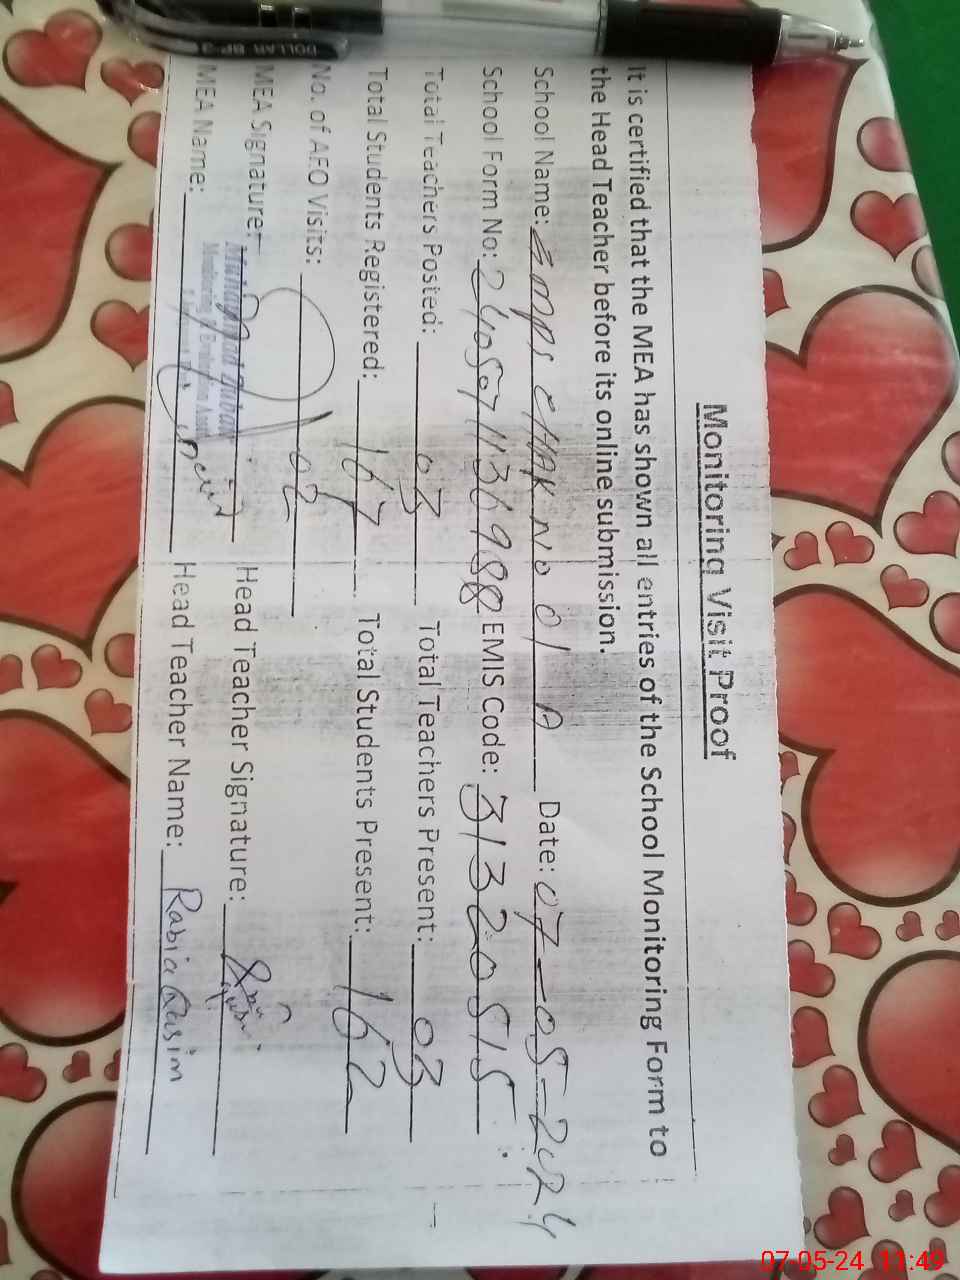 Monitoring Visit Proof
It is certified that the MEA has shown all entries of the School Monitoring Form to
the Head Teacher before its online submission.
School Name: GMPS CHAK NO 01 A Date: 07-05-2024
School Form No: 24050711369 88 EMIS Code: 31320515
Total Teachers Posted: 03 Total Teachers Present: 03
Total Students Registered: 167 Total Students Present: 162
No. of AEO Visits: 02
MEA Signature: Head Teacher Signature:
Monitoring & Evaluation
MEA Name: Head Teacher Name: Rabia Qasim
DOLLAR BP-3
07-05-24 11:49